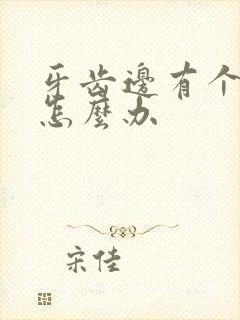 牙齿邊有个
怎麼办
宋佳